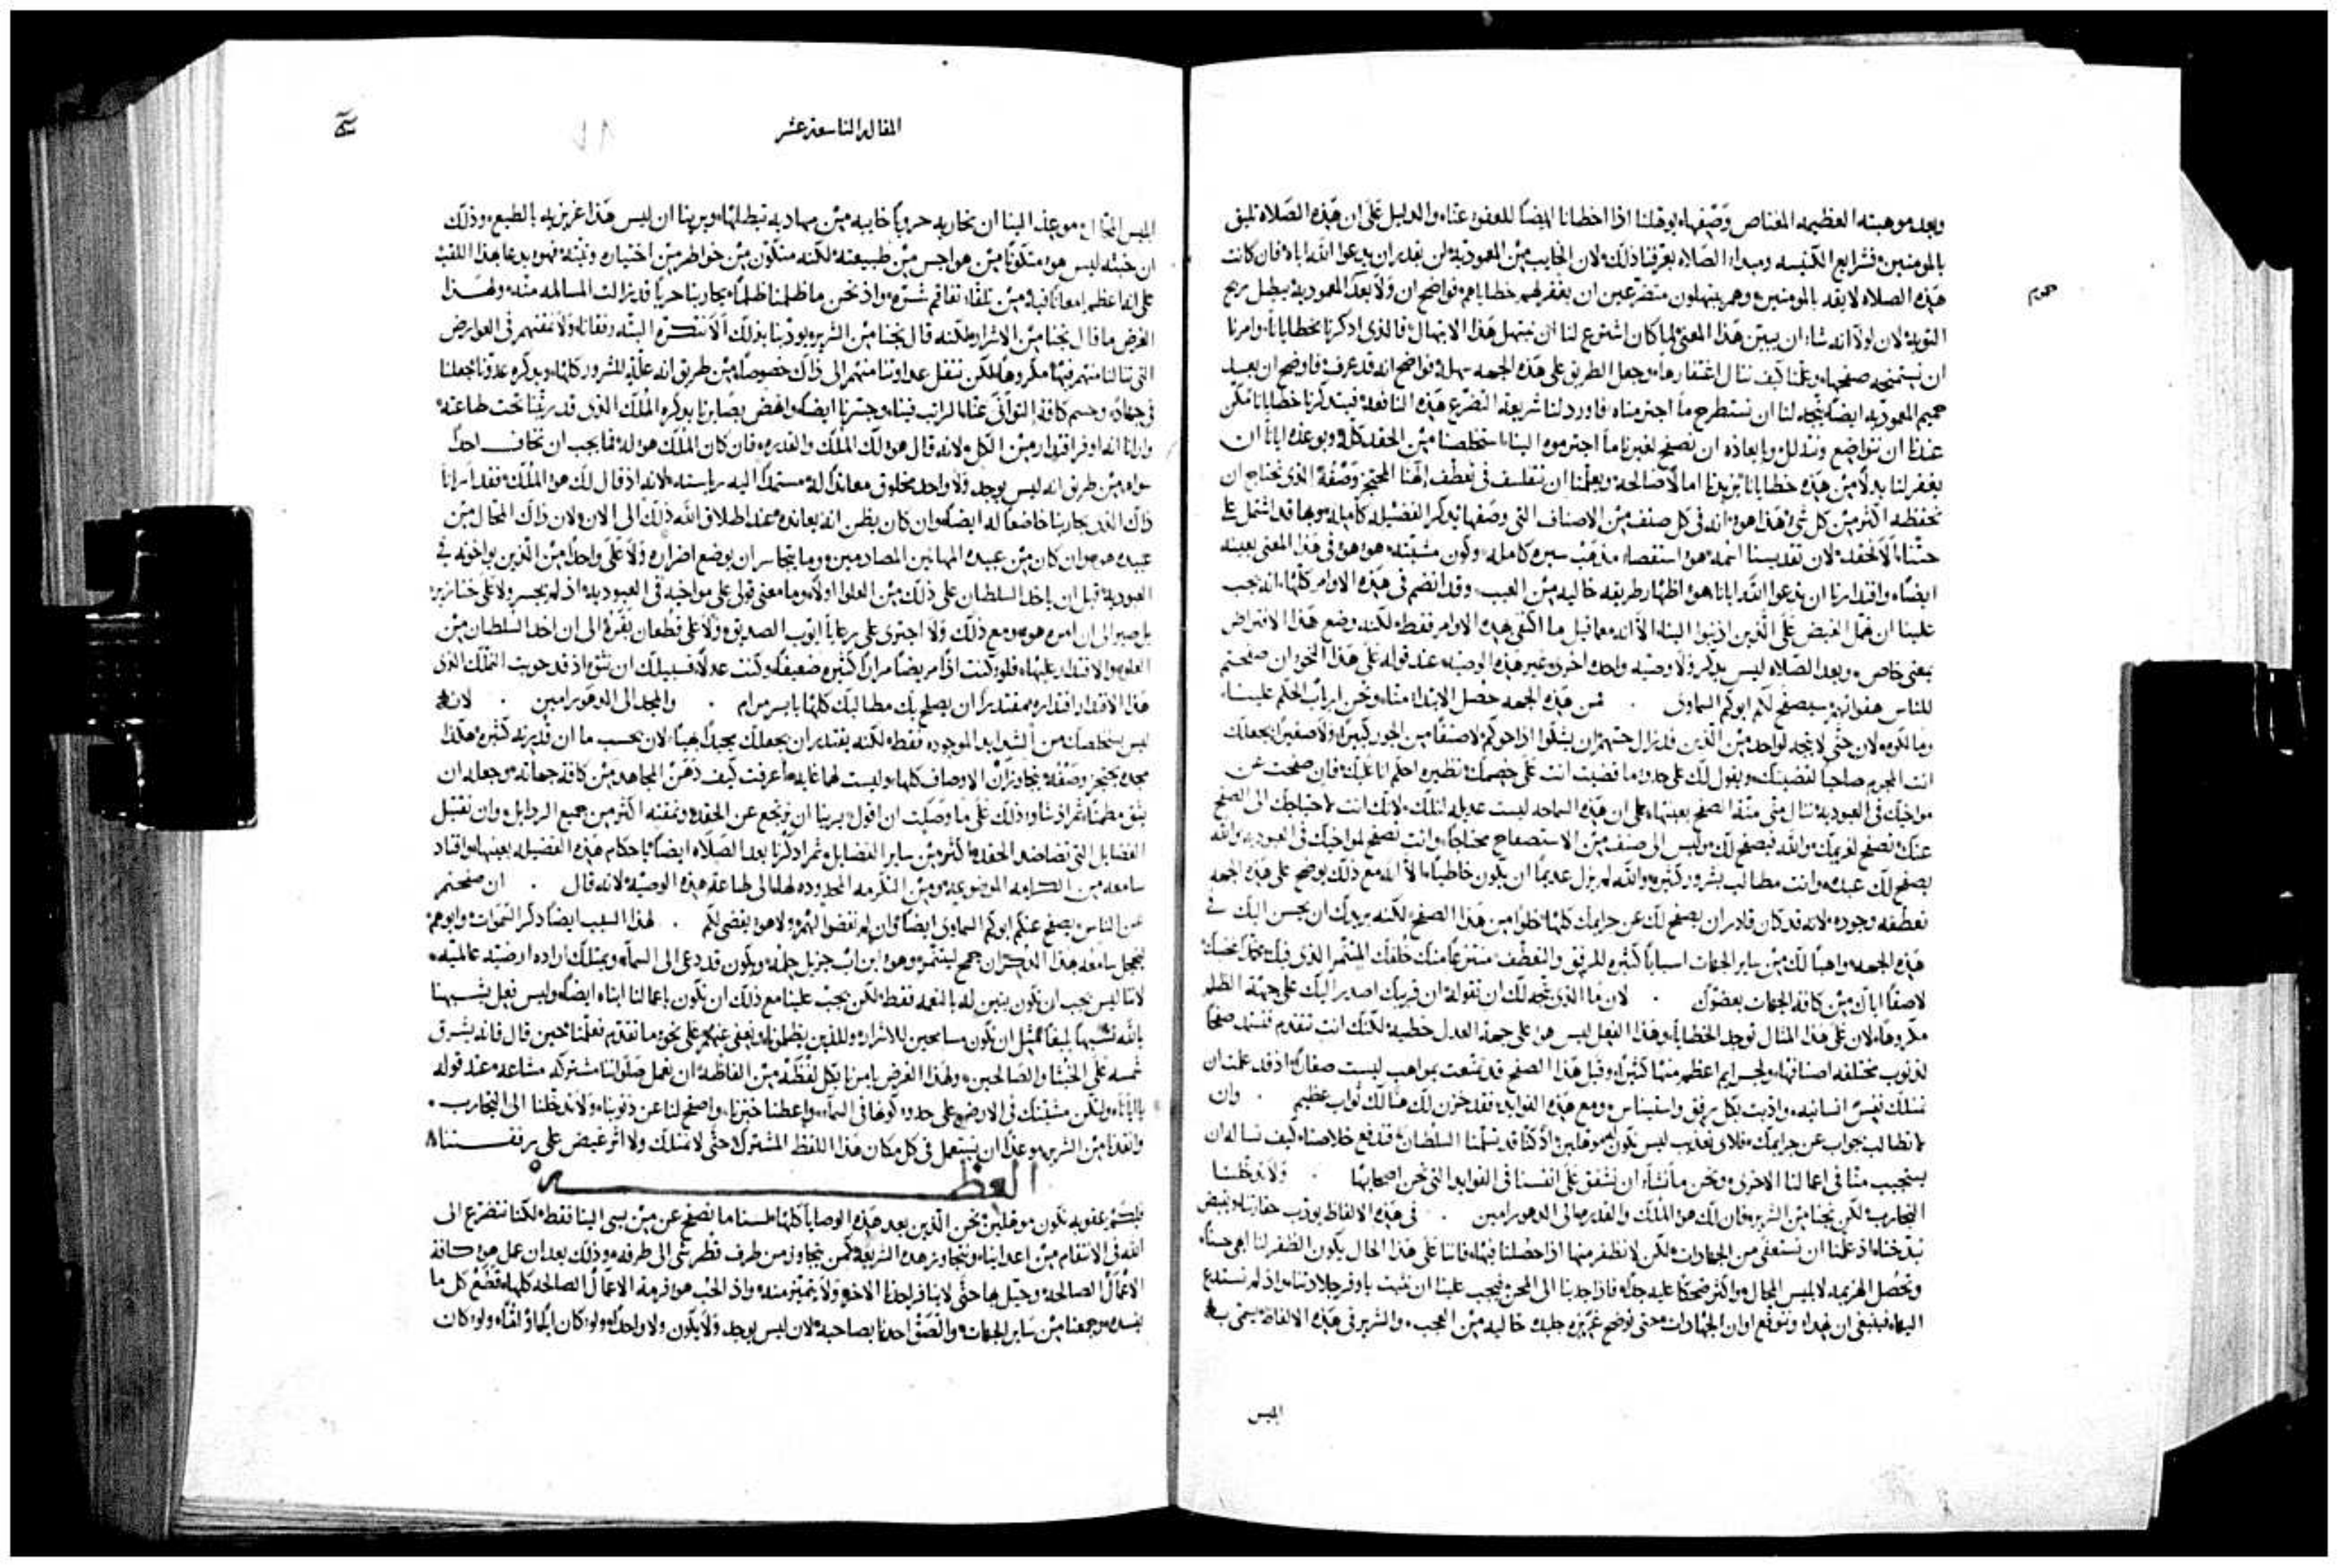 وبعد موهبته العظيمه المغتاص وصفها يوهلنا اذا اخطانا ايضًا للعفو عنا والدليل على ان هذه الصلاه تليق
بالمومنين فشرايع الكنيسه ومبداء الصلاه يعرفنا ذلك لان الخايب من المعموديه لن يقدر ان يدعوا الله اباه فان كانت
هذه الصلاه لايقه بالمومنين وهم يبتهلون متضرعين ان يغفر لهم خطاياهم فواضح ان ولا بعد المعموديه يبطل ربح
التوبه لان لولا انه شاء ان يبين هذا المعنى لما كان اشترع لنا ان نبتهل هذا الابتهال فالذى اذكرنا بخطايانا وامرنا
ان نستمنحه صفحها وعلمنا كيف ننال اغتفارها وجعل الطريق على هذه الجهه سهله فواضح انه قد عرف واوضح ان بعد
حميم المعموديه ايضًا يتجه لنا ان نستطرح ما اجترمناه فاورد لنا شريعة التضرع هذه النافعه فبتذكرنا خطايانا تمكن
عندنا ان نتواضع ونتذلل وبايعاذه ان نصفح لغيرنا ما اجترموه الينا استخلصنا من الحقد كله وبوعده ايانا ان
يغفر لنا بدلًا من هذه خطايانا يزيدنا امالًا صالحه ويعلمنا ان نتفلسف فى تعطف الهنا المحتجز وصفه الذى نحتاج ان
نحفظه اكثر من كل شى هذا هو انه فى كل صنف من الاصناف التى وصفها بذكر الفضيله كامله وبها قد اشتمل على
حثنا الا نحقد لان تقديسنا اسمه هو استقصاء مذهب سيره كامله وكون مشيته هو هو فى هذا المعنى بعينه
ايضًا واقتدارنا ان ندعوا الله ابانا هو اظهار طريقه خاليه من العيب وقد انضم فى هذه الاوامر كلها انه يجب
علينا ان نهمل الغيض على الذين اذنبوا الينا الا انه معما قيل ما اكتفى بهذه الاوامر فقط لكنه وضع هذا الافتراض
بمعنى خاص وبعد الصلاه ليس يذكر ولا وصيه واحده اخرى غير هذه الوصيه عند قوله على هذا النحو ان صفحتم
للناس هفواتهم سيصفح لكم ابوكم السماوى . فمن هذه الجهه حصل الابتداء منا ونحن ارباب الحكم علينا
انت المجرم صاحبًا لقضيتك ويقول لك على حدوا ما قضيت انت على خصمك نظيره احكم انا عليك فان صفحت عن
مواخيك فى العبوديه تنال منى منة الصفح بعينها على ان هذه السماحه ليست عديله لتلك لانك انت لاحتياجك الى الصفح
عنك تصفح لغريمك والله فيصفح لك وليس الى صنف من الاستصفاح محتاجًا وانت تصفح لمواخيك فى العبوديه والله
يصفح لك عبده وانت مطالب بشرور كثيره والله لم يزل عديمًا ان يكون خاطيًا الا انه مع ذلك يوضح على هذه الجهه
تعطفه وجوده لانه قد كان قادرًا ان يصفح لك عن جرايمك كلها خلوًا من هذا الصفح لكنه يريدك ان يحسن اليك فى
هذه الجهه واهبًا لك من ساير الجهات اسبابًا كثيره للرفق والتعطف منتزعًا منك خلقك المتنمر الذى فيك
لاصقًا اياك من كافة الجهات بعضوك . لان ما الذى يتجه لك ان تقوله ان قريبك اصدر اليك على جهة الظلم
مكروهًا لان على هذا المثال توجد الخطايا وهذا الفعل ليس هو على جهة العدل خطيه لكنك انت تتقدم فتستمد صفحًا
لذنوب مختلفه اصنافها ولجرايم اعظم منها كثيرًا وقبل هذا الصفح قد تمتعت بمواهب ليست صغارًا اذ قد علمت ان
تمتلك نفسًا انسانيه واذيت بكل رفق واستيناس ومع هذه الفوايد فقد خزن لك هنالك ثواب عظيم . وان
لا تطالب جواب عن جرايمك فلاى تعذيب ليس نكون موهلين اذ كنا قد تسلمنا السلطان فندفع خلاصنا كيف نساله ان
يستجيب منا فى اعمالنا الاخرى ونحن ما نشاء ان نشفق على انفسنا فى الفوايد التى نحن اصحابها . ولا تدخلنا
التجارب لكن نجنا من الشرير فان لك هو الملك والقدره الى الدهور امين . فى هذه الالفاظ يودب حقارتنا ويقبض
بذخنا اذ علمنا ان نستعفى من الجهادات لكن لا نظفر منها اذا حصلنا فيها فاننا على هذا الحال يكون الظفر لنا ابهى حسنًا
وتحصل الهزيمه لابليس المحال واكثر ضحكًا عليه جدًا فاذا جذبنا الى المحن فيجب علينا ان نثبت باوفر جلادتنا واذ لم نستدع
اليها فينبغى ان نهداء ونتوقع اوان الجهادات حتى نوضح غريزه جليده خاليه من العجب والشرير فى هذه الالفاظ يسمى به
ابليس
المقاله التاسعه عشر
ابليس المحال موعزًا الينا ان نحاربه حروبًا خايبه من مهاديه تبطلها ويرينا ان ليس هذا غريزيه بالطبع وذلك
ان خبثه ليس هو متكونًا من هواجس من طبيعته لكنه متكون من خواطر من اختياره ونيته فهو يدعا بهذا اللقب
على انها عظم امعانًا فيه من تلقاء تفاقم شره واذ نحن ما ظلمنا ظلمًا يحاربنا حربًا قد زالت المسالمه منه ولهذا
الغرض ما قال نجنا من الاشرار لكنه قال نجنا من الشرير يودبنا بذلك الا نتكره البته رفقانا ولا نمقتهم فى العوارض
التى تنالنا منهم فيها مكروها لكن ننقل عداوتنا منهم الى ذاك خصوصًا من طريق انه علة للشرور كلها وبذكره عدونا جعلنا
فى جهاده وحسم كافة التوانى عنا الراتب فينا وجسرنا ايضًا وانهض بصايرنا بذكره الملك الذى قد رتبنا تحت طاعته
وارانا انه اوفر اقتدار من الكل لانه قال هو لك الملك والقدره فان كان الملك هو له فما يجب ان نخاف احدًا
سواه من طريق انه ليس يوجد ولا واحد مخلوق معاندًا له مستمدًا اليه رياسته لانه اذ قال لك هو الملك فقد ارانا
ذاك الذى يحاربنا خاضعًا له ايضًا وان كان يظن انه يعانده عند اطلاق الله ذلك الى الان ولان ذاك المحال من
عبيده هو وان كان من عبيده المهانين المصادمين وما يتجاسر ان يوضع اضراره ولا على واحدًا من الذين يواخونه فى
العبوديه قبل ان ياخذ السلطان على ذلك من العلوا اولًا وما معنى قولى على مواخيه فى العبوديه اذ لم يجسر ولا على خنازير
العلو والاقتدار عليها فلو كنت اذًا مريضًا مرارًا كثيره ضعيفًا وكنت عدلًا فسبيلك ان تثق اذ قد حويت الملك الذى
هذا الاقتدار اقتداره مقتدرًا ان يصلح بك مطالبك كلها بايسر مرام . والمجد الى الدهور امين . لانه
ليس يستخلصك من الشدايد الموجوده فقط لكنه يقتدر ان يجعلك مجيدًا بهيًا لان بحسب ما ان قدرته كثيره هكذا
مجده يحتجز وصفه يتجاوزان الاوصاف كلها وليست لهما غايه اعرفت كيف دهن المجاهد من كافة جهاته وجعله ان
يثق مطمنًا ثم اذ شاء ذلك على ما وصلت ان اقول يرينا ان نرجع عن الحقد ونمقته اكثر من جميع الرذايل وان نقتبل
الفضايل التى تضاضد الحقد اكثر من ساير الفضايل ثم اذكرنا بعد الصلاه ايضًا باحكام هذه الفضيله بعينها واقتاد
سامعه من الكرامه الموضوعه ومن التكرمه المحدوده لها الى طاعة هذه الوصيه لانه قال . ان صفحتم
عن الناس يصفح عنكم ابوكم السماوى ايضًا وان لم تغضوا لهم ولا هو يغضى لكم . لهذا السبب ايضًا ذكر السموات وابوهم
ليخجل سامعه بهذا الذكر ان جمح ليتنمر وهو ابن اب جزيل حلمه ويكون قد دعى الى السماء ويمتلك اراده ارضيه عالميه
لاننا ليس يجب ان نكون بنين له بالنعمه فقط لكن يجب علينا مع ذلك ان نكون باعمالنا ابناه ايضًا وليس فعل يشبهنا
بالله تشبيهًا بليغًا كمثل ان نكون مسامحين للاشرار وللذين يظلمونا ونعفى عنهم على نحو ما تقدم فعلمنا حين قال فانه يشرق
شمسه على الخبثا والصالحين ولهذا الغرض يامرنا بكل لفظه من الفاظه ان نعمل صلواتنا مشتركه مشاعه عند قوله
ياابانا ولتكن مشيتك فى الارض على حدوا كونها فى السماء واعطنا خبزنا واصفح لنا عن ذنوبنا ولا تدخلنا الى التجارب
وانقذنا من الشرير موعزًا ان نستعمل فى كل مكان هذا اللفظ المشترك حتى لا نمتلك ولا اثر غيض على رفقنا
العظه
فبكم عقوبه نكون موهلين نحن الذين بعد هذه الوصايا كلها لسنا ما نصفح عن من يسى الينا فقط لكنا نتضرع الى
الله فى الانتقام من اعداينا ونتجاوز هذه الشريعه كمن يتجاوز من طرف قطر شى الى طرفه وذلك بعد ان عمل هو كافة
الاعمال الصالحه وحيل بها حتى لا ينافر احدنا الاخر ولا يتميز منه واذ الحب هو قرمة الاعمال الصالحه كلها قطع كل ما
يفسده وجمعنا من ساير الجهات والصق احدنا بصاحبه لان ليس يوجد ولا يكون ولا واحدًا ولو كان ابًا او امًا ولو كان